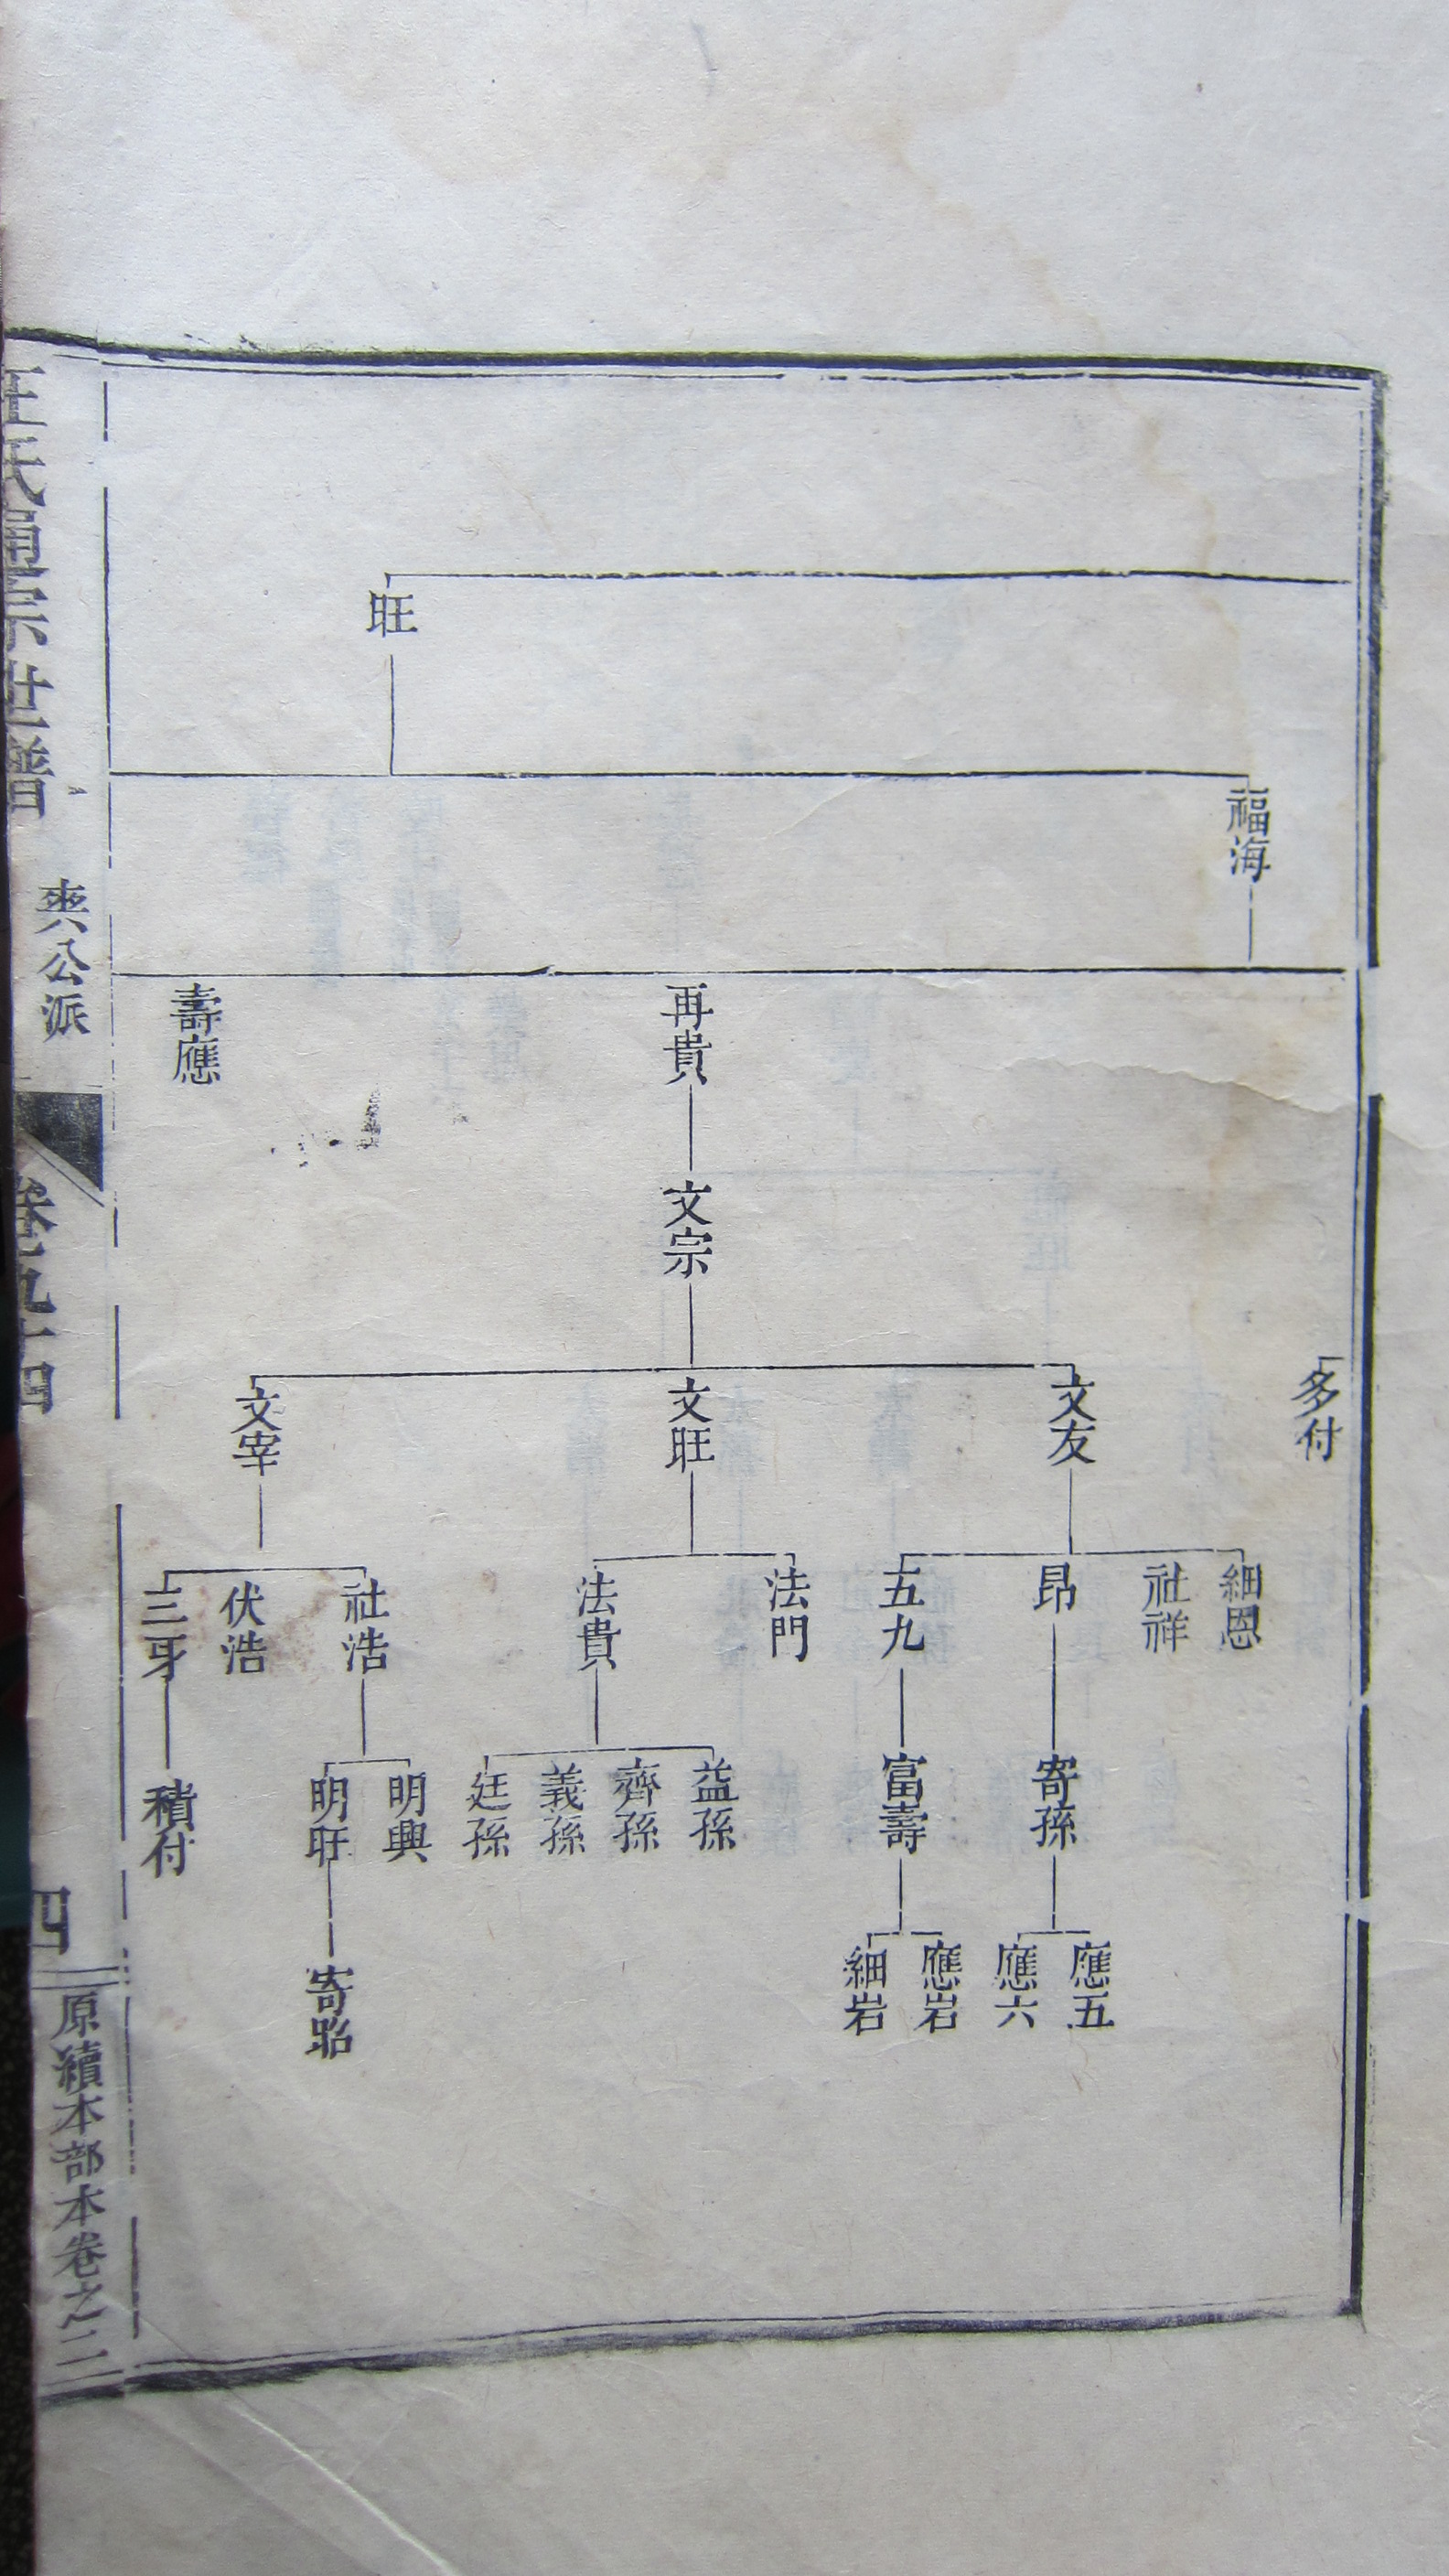 旺
福海
再貴
壽應
文宗
多付
文友
文旺
文宰
細恩
社祥
昂
五九
法門
法貴
社浩
伏浩
三牙
寄孫
富壽
益孫
齊孫
義孫
廷孫
明興
明旺
積付
應五
應六
應岩
細岩
寄招
宗世譜
夾公派
卷九十四
四
原續本部本卷之二